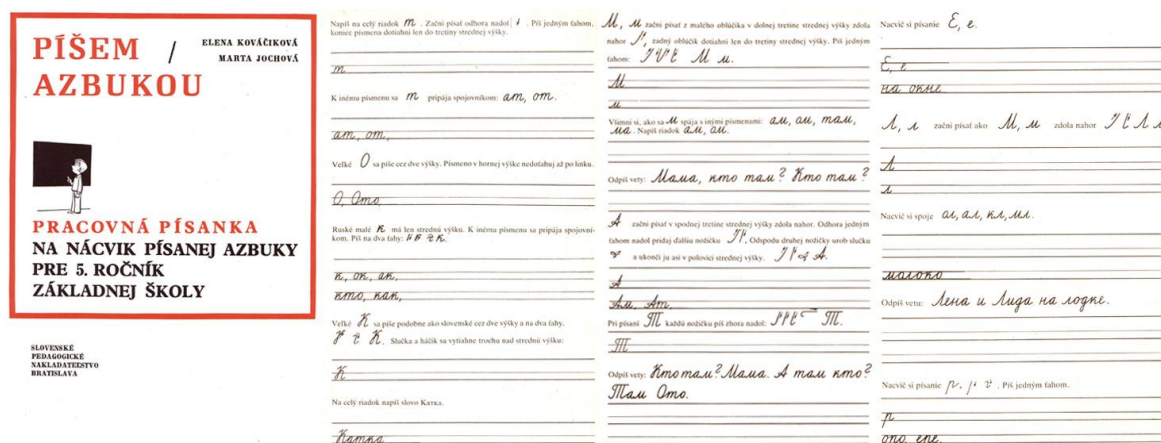 PÍŠEM /
AZBUKOU
ELENA KOVÁČIKOVÁ
MARTA JOCHOVÁ
PRACOVNÁ PÍSANKA
NA NÁCVIK PÍSANEJ AZBUKY
PRE 5. ROČNÍK
ZÁKLADNEJ ŠKOLY
SLOVENSKÉ
PEDAGOGICKÉ
NAKLADATEĽSTVO
BRATISLAVA
Napíš na celý riadok т. Začni písať odhora nadol. Píš jedným ťahom,
koniec písmena dotiahni len do tretiny strednej výšky.
т
K inému písmenu sa т pripája spojovníkom: ат, от.
ат, от,
Veľké О sa píše cez dve výšky. Písmeno v hornej výške nedoťahuj až po linku.
О, Ото,
Ruské malé к má len strednú výšku. K inému písmenu sa pripája spojovní-
kom. Píš na dva ťahy: к.
к, ок, ак,
кто, как,
Veľké К sa píše podobne ako slovenské cez dve výšky a na dva ťahy.
К. Slučka a háčik sa vytiahne trochu nad strednú výšku:
К
Na celý riadok napíš slovo Катка.
Катка
М, м začni písať z malého oblúčika v dolnej tretine strednej výšky zdola
nahor, zadný oblúčik dotiahni len do tretiny strednej výšky. Píš jedným
ťahom: М м.
М
м
Všimni si, ako sa м spája s inými písmenami: ам, ом, там,
ма. Napíš riadok ам, ом.
Odpíš vety: Мама, кто там? Кто там?
А začni písať v spodnej tretine strednej výšky zdola nahor. Odhora jedným
ťahom nadol pridaj ďalšiu nožičku. Odspodu druhej nožičky urob slučku
a ukonči ju asi v polovici strednej výšky. А.
А
Ам, Ат,
Pri písaní Т každú nožičku píš zhora nadol: Т.
Т
Odpíš vety: Кто там? Мама. А там кто?
Там Ото.
Nacvič si písanie Е, е.
Е, е
на окне
Л, л začni písať ako М, м zdola nahor Л л
Л
л
Nacvič si spoje ол, ал, кл, мл.
молоко
Odpíš vetu: Лена и Лида на лодке.
Nacvič si písanie р. Píš jedným ťahom.
р
оро, ере,